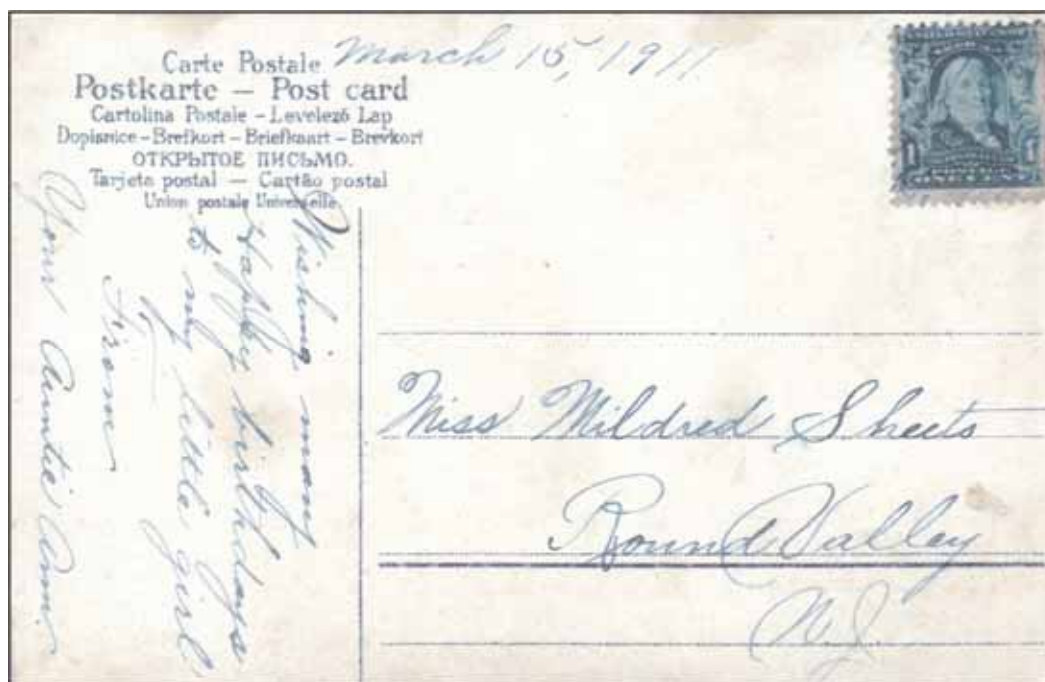 March 15, 1911
Carte Postale.
Postkarte – Post card
Cartolina Postale – Levelező Lap
Dopisnice – Brefkort – Briefkaart – Brevkort
ОТКРЫТОЕ ПИСЬМО.
Tarjeta postal — Cartão postal
Union postale Universelle.
Wishing many
Happy birthdays
to my little girl
From
Your Auntie Ann.
Miss Mildred Sheets
Round Valley
N.J.
1 1
ONE CENT